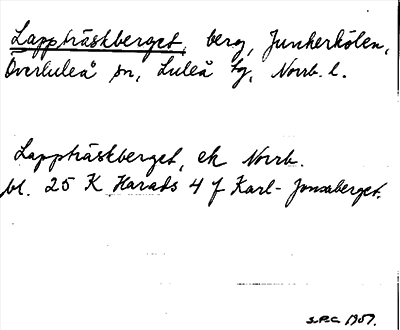 Lappträskberget, berg, Junkerkölen,
Överluleå sn, Luleå tg, Norrb. l.
Lappträskberget, ek Norrb.
bl. 25 K Harads 4 f Karl-Jonsaberget.